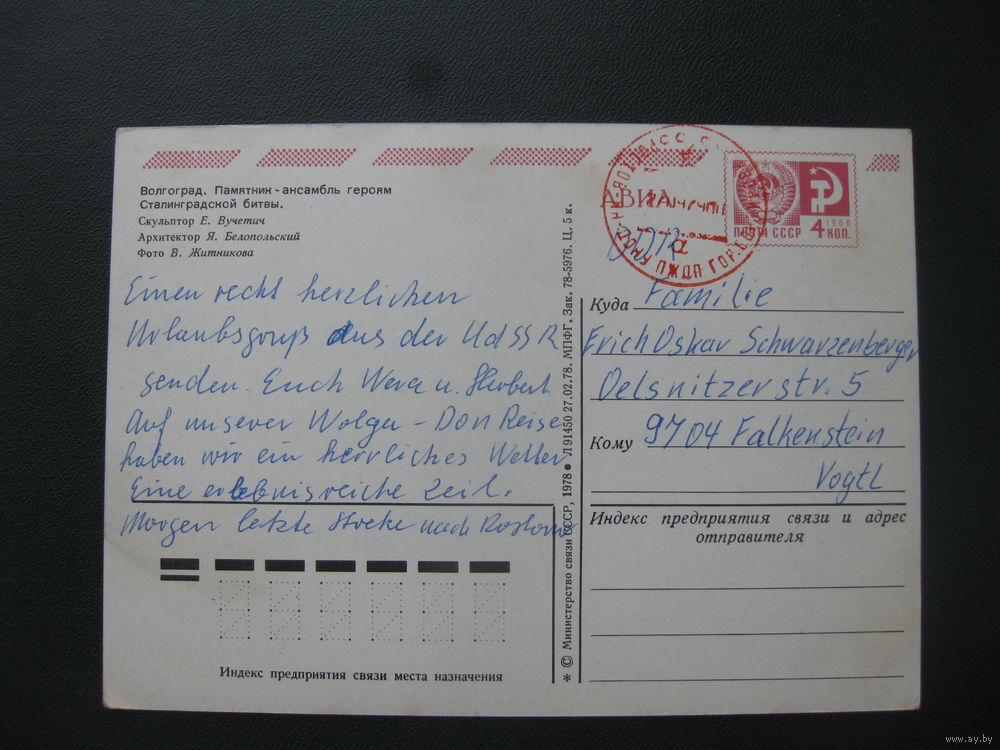 Волгоград. Памятник-ансамбль героям
Сталинградской битвы.
Скульптор Е. Вучетич
Архитектор Я. Белопольский
Фото В. Житникова
Einen recht herzlichen
Urlaubsgruß aus der UdSSR
senden Euch Wera u. Herbert
Auf unserer Wolga - Don Reise
haben wir ein herrliches Wetter
Eine erlebnisreiche Zeit.
Morgen letzte Strecke nach Rostow
Индекс предприятия связи места назначения
* © Министерство связи СССР, 1978 ● Л 91450 27.02.78. МПФГ. Зак. 78-5976. Ц. 5 к.
АВИА
ПОЧТА СССР
1966
4 КОП.
DDR
РОСТОВ-НА-ДОНУ ПЖДП
а
Куда Familie
Erich Oskar Schwarzenberger
Oelsnitzerstr. 5
Кому 9704 Falkenstein
Vogtl
Индекс предприятия связи и адрес
отправителя
www.ay.by